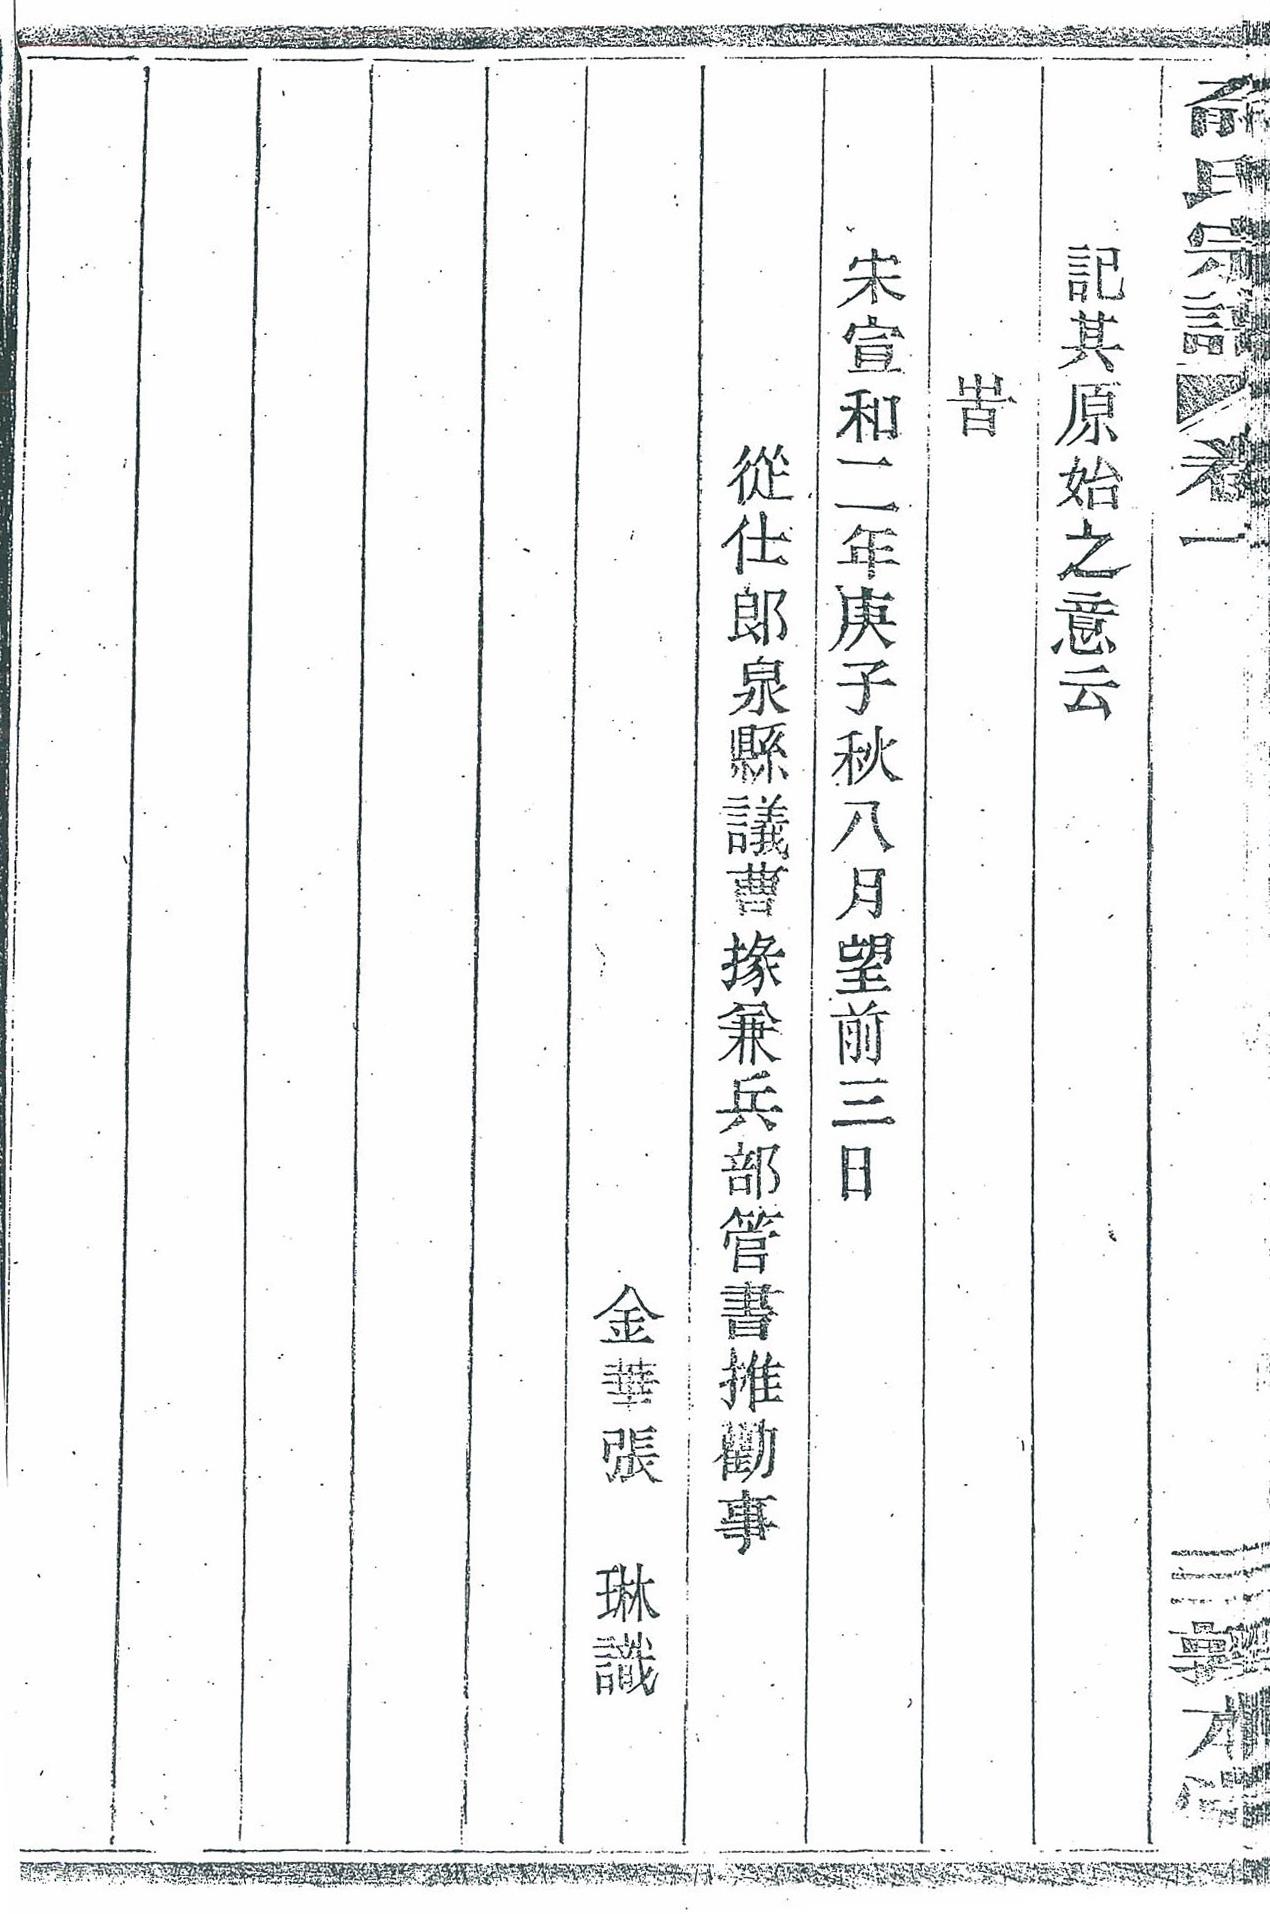 俞氏宗譜 卷一
記其原始之意云
旹
宋宣和二年庚子秋八月望前三日
從仕郎泉縣議曹掾兼兵部管書推勸事
金華張 琳識
三 敦本堂